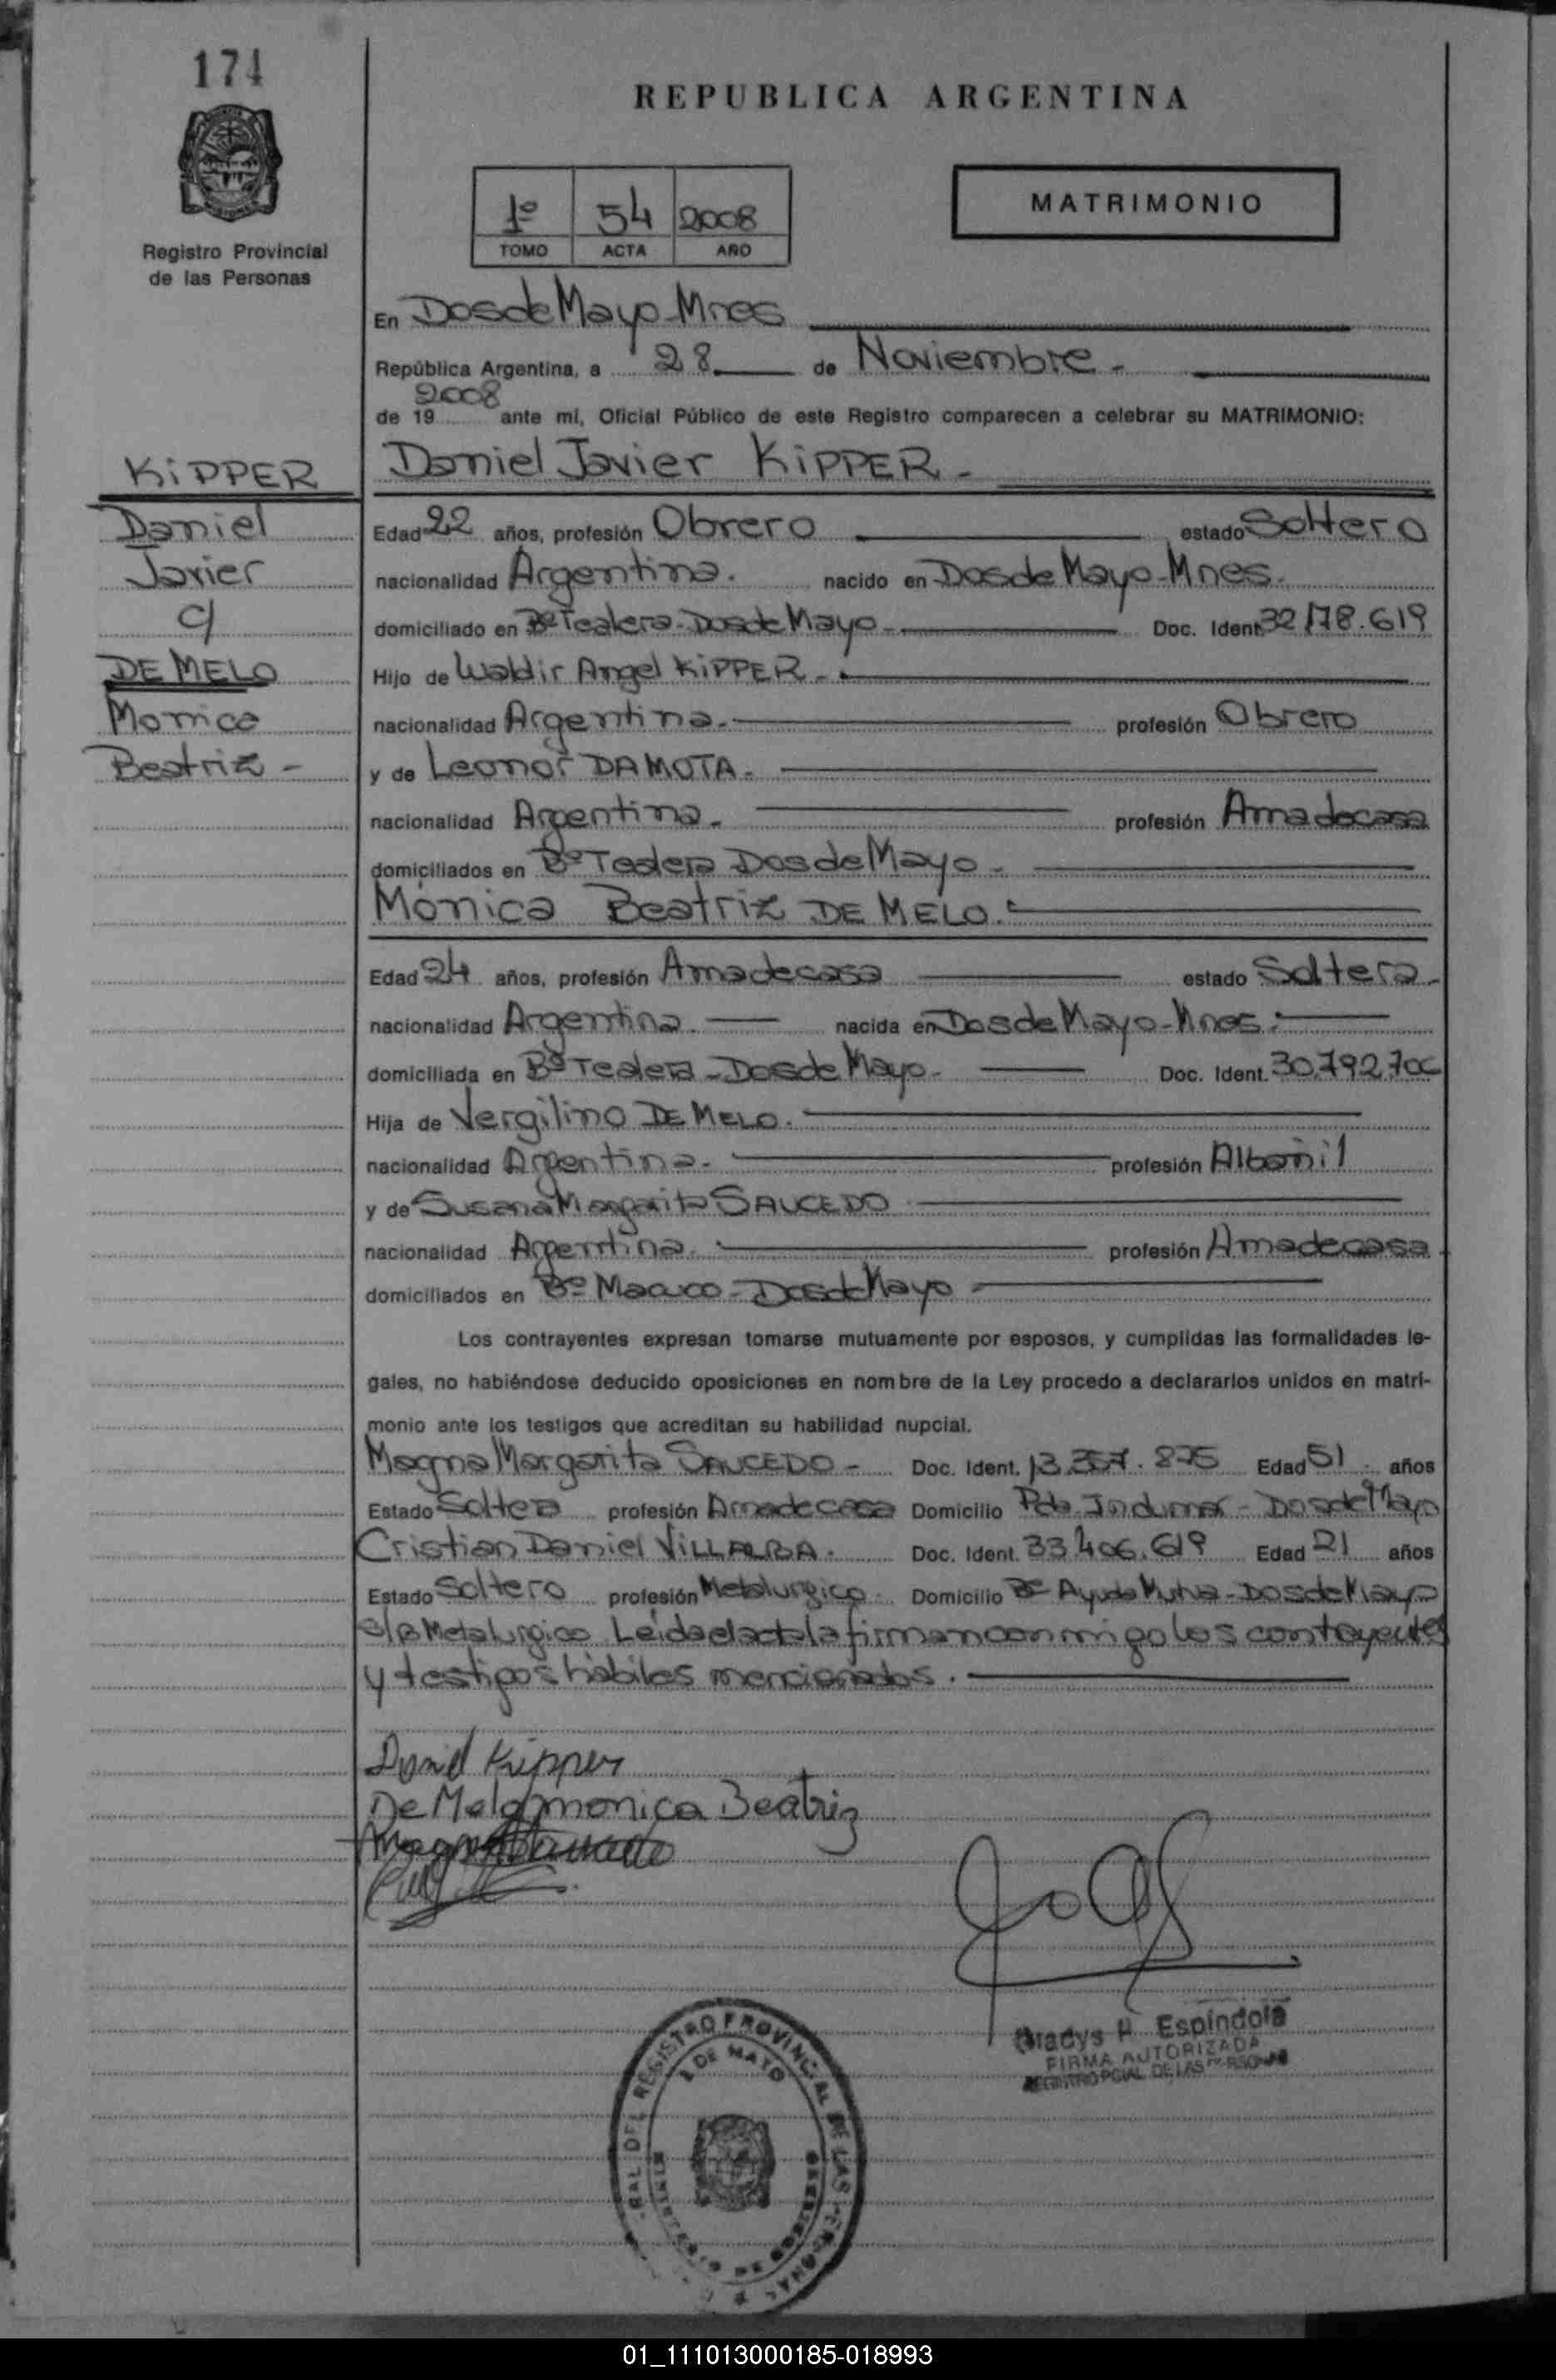 174
REPUBLICA ARGENTINA
1º 54 2008
TOMO ACTA AÑO
MATRIMONIO
Registro Provincial
de las Personas
En Dos de Mayo-Mnes
República Argentina, a 28 de Noviembre.-
2008
de 19 ante mi, Oficial Público de este Registro comparecen a celebrar su MATRIMONIO:
KiPPER
Daniel Javier KiPPER-
Daniel
Edad 22 años, profesión Obrero estado Soltero
Javier
nacionalidad Argentina. nacido en Dos de Mayo-Mnes.
c/
domiciliado en Bº Tealera-Dos de Mayo- Doc. Ident. 32178.619
DE MELO
Hijo de Waldir Angel KiPPER-
Monica
nacionalidad Argentina.- profesión Obrero
Beatriz-
y de Leonor DAMOTA.
nacionalidad Argentina. profesión Ama de casa
domiciliados en Bº Tealera Dos de Mayo-
Mónica Beatriz DE MELO.
Edad 24 años, profesión Ama de casa estado Soltera.
nacionalidad Argentina. nacida en Dos de Mayo-Mnes.
domiciliada en Bº Tealera-Dos de Mayo- Doc. Ident. 30.792.706
Hija de Vergilino DE MELO.
nacionalidad Argentina. profesión Albañil
y de Susana Margarita SAUCEDO
nacionalidad Argentina. profesión Ama de casa.
domiciliados en Bº Dos de Mayo-
Los contrayentes expresan tomarse mutuamente por esposos, y cumplidas las formalidades le-
gales, no habiéndose deducido oposiciones en nombre de la Ley procedo a declararlos unidos en matri-
monio ante los testigos que acreditan su habilidad nupcial.
Magna Margarita SAUCEDO- Doc. Ident. 13.357.875 Edad 51 años
Estado Soltera profesión Ama de casa Domicilio Pda. Indumar-Dos de Mayo
Cristian Daniel ViLLALBA. Doc. Ident. 33.406.619 Edad 21 años
Estado Soltero profesión Metalurgico Domicilio Bº Ayuda Mutua-Dos de Mayo
s/b Metalurgico. Leida el acta la firman conmigo los contrayentes
y testigos hábiles mencionados.
Daniel Kipper
De Melo monica Beatriz
Gladys H. Espíndola
FIRMA AUTORIZADA
REGISTRO PCIAL. DE LAS PERSONAS
DEL REGISTRO PROVINCIAL DE LAS PERSONAS
2 DE MAYO
01_111013000185-018993